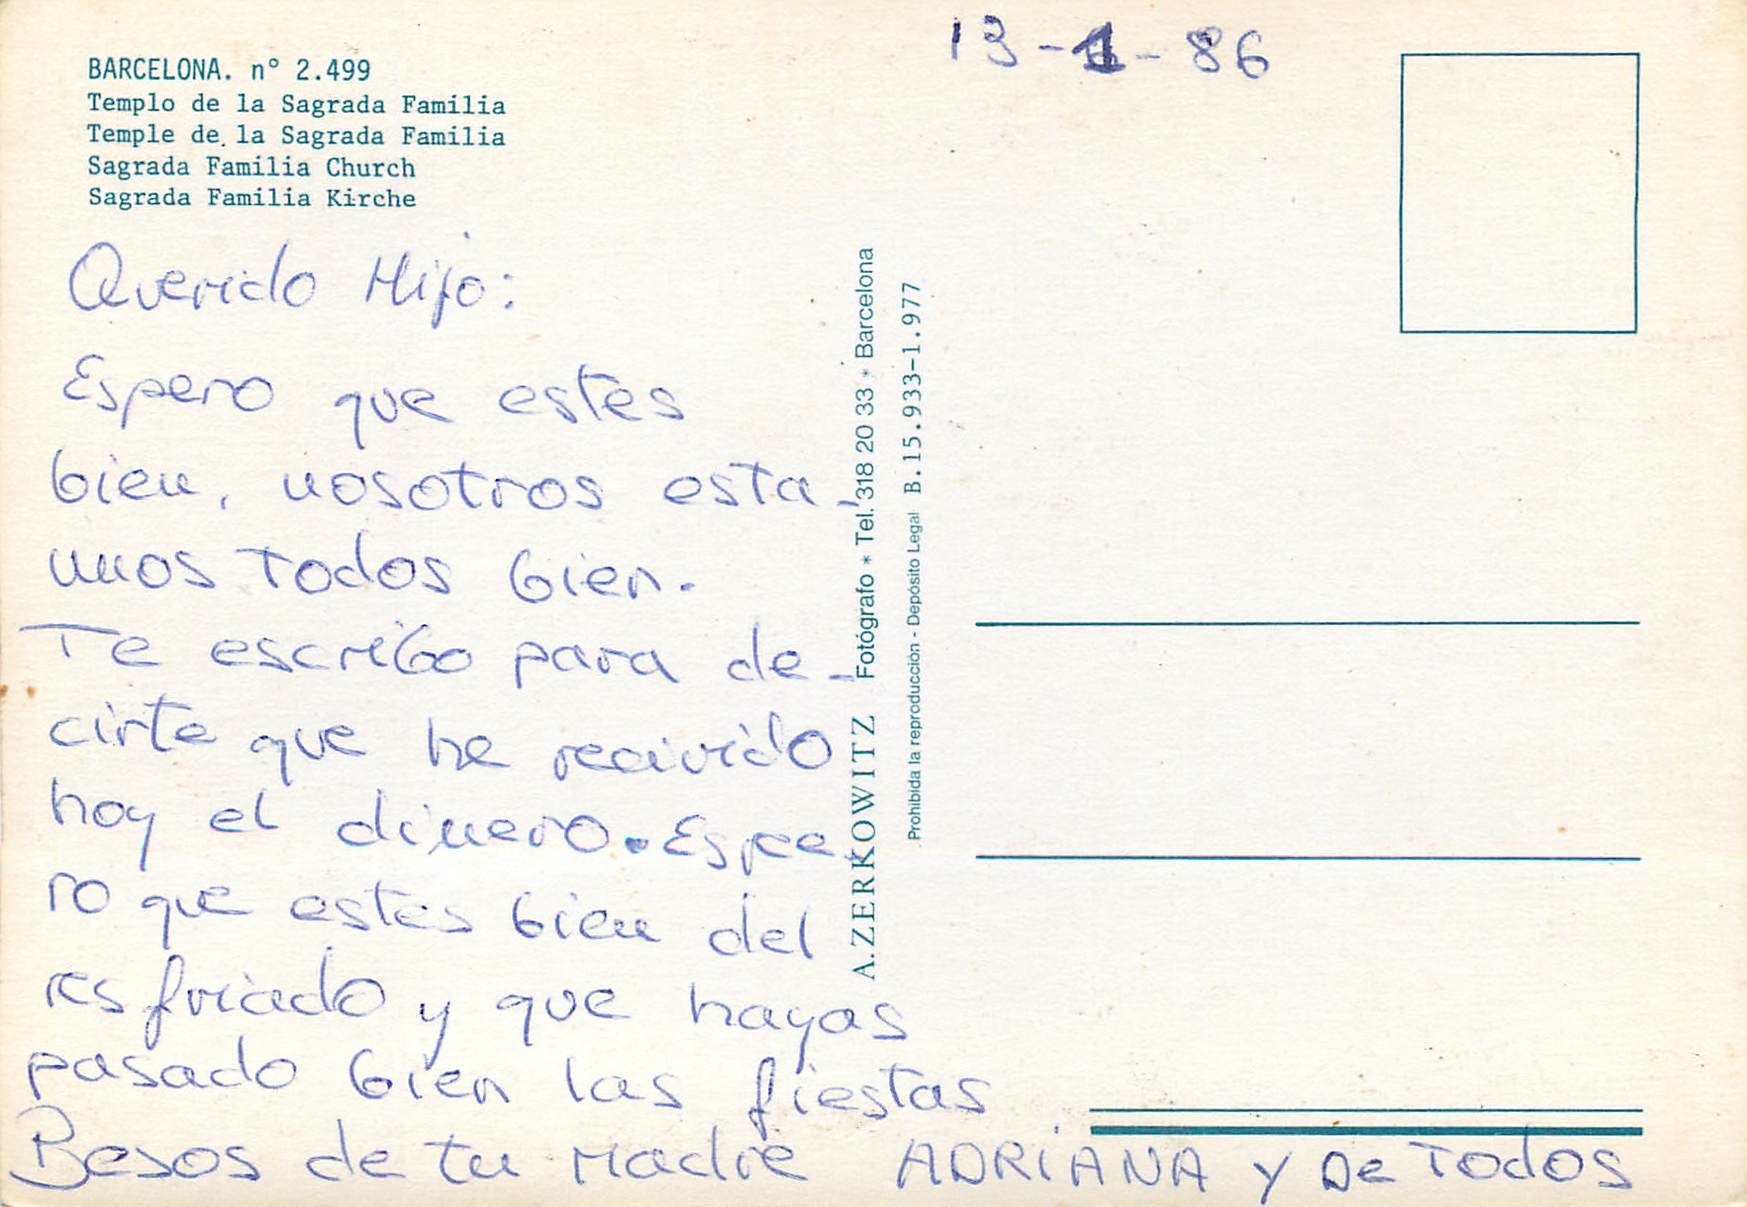 13-1-86
BARCELONA. n° 2.499
Templo de la Sagrada Familia
Temple de la Sagrada Familia
Sagrada Familia Church
Sagrada Familia Kirche
Querido Hijo:
Espero que estes
bien, nosotros esta-
mos Todos bien.
Te escribo para de-
cirte que he recivido
hoy el dinero. Espe-
ro que estes bien del
resfriado y que hayas
pasado bien las fiestas
Besos de tu Madre ADRiANA y De Todos
A. ZERKOWITZ Fotógrafo * Tel. 318 20 33 * Barcelona
Prohibida la reproducción - Depósito Legal B.15.933-1.977